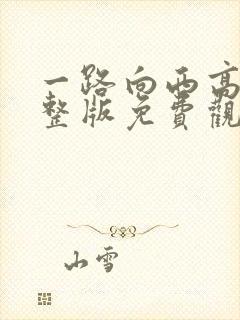 一路向西高
整版免費觀
山雪